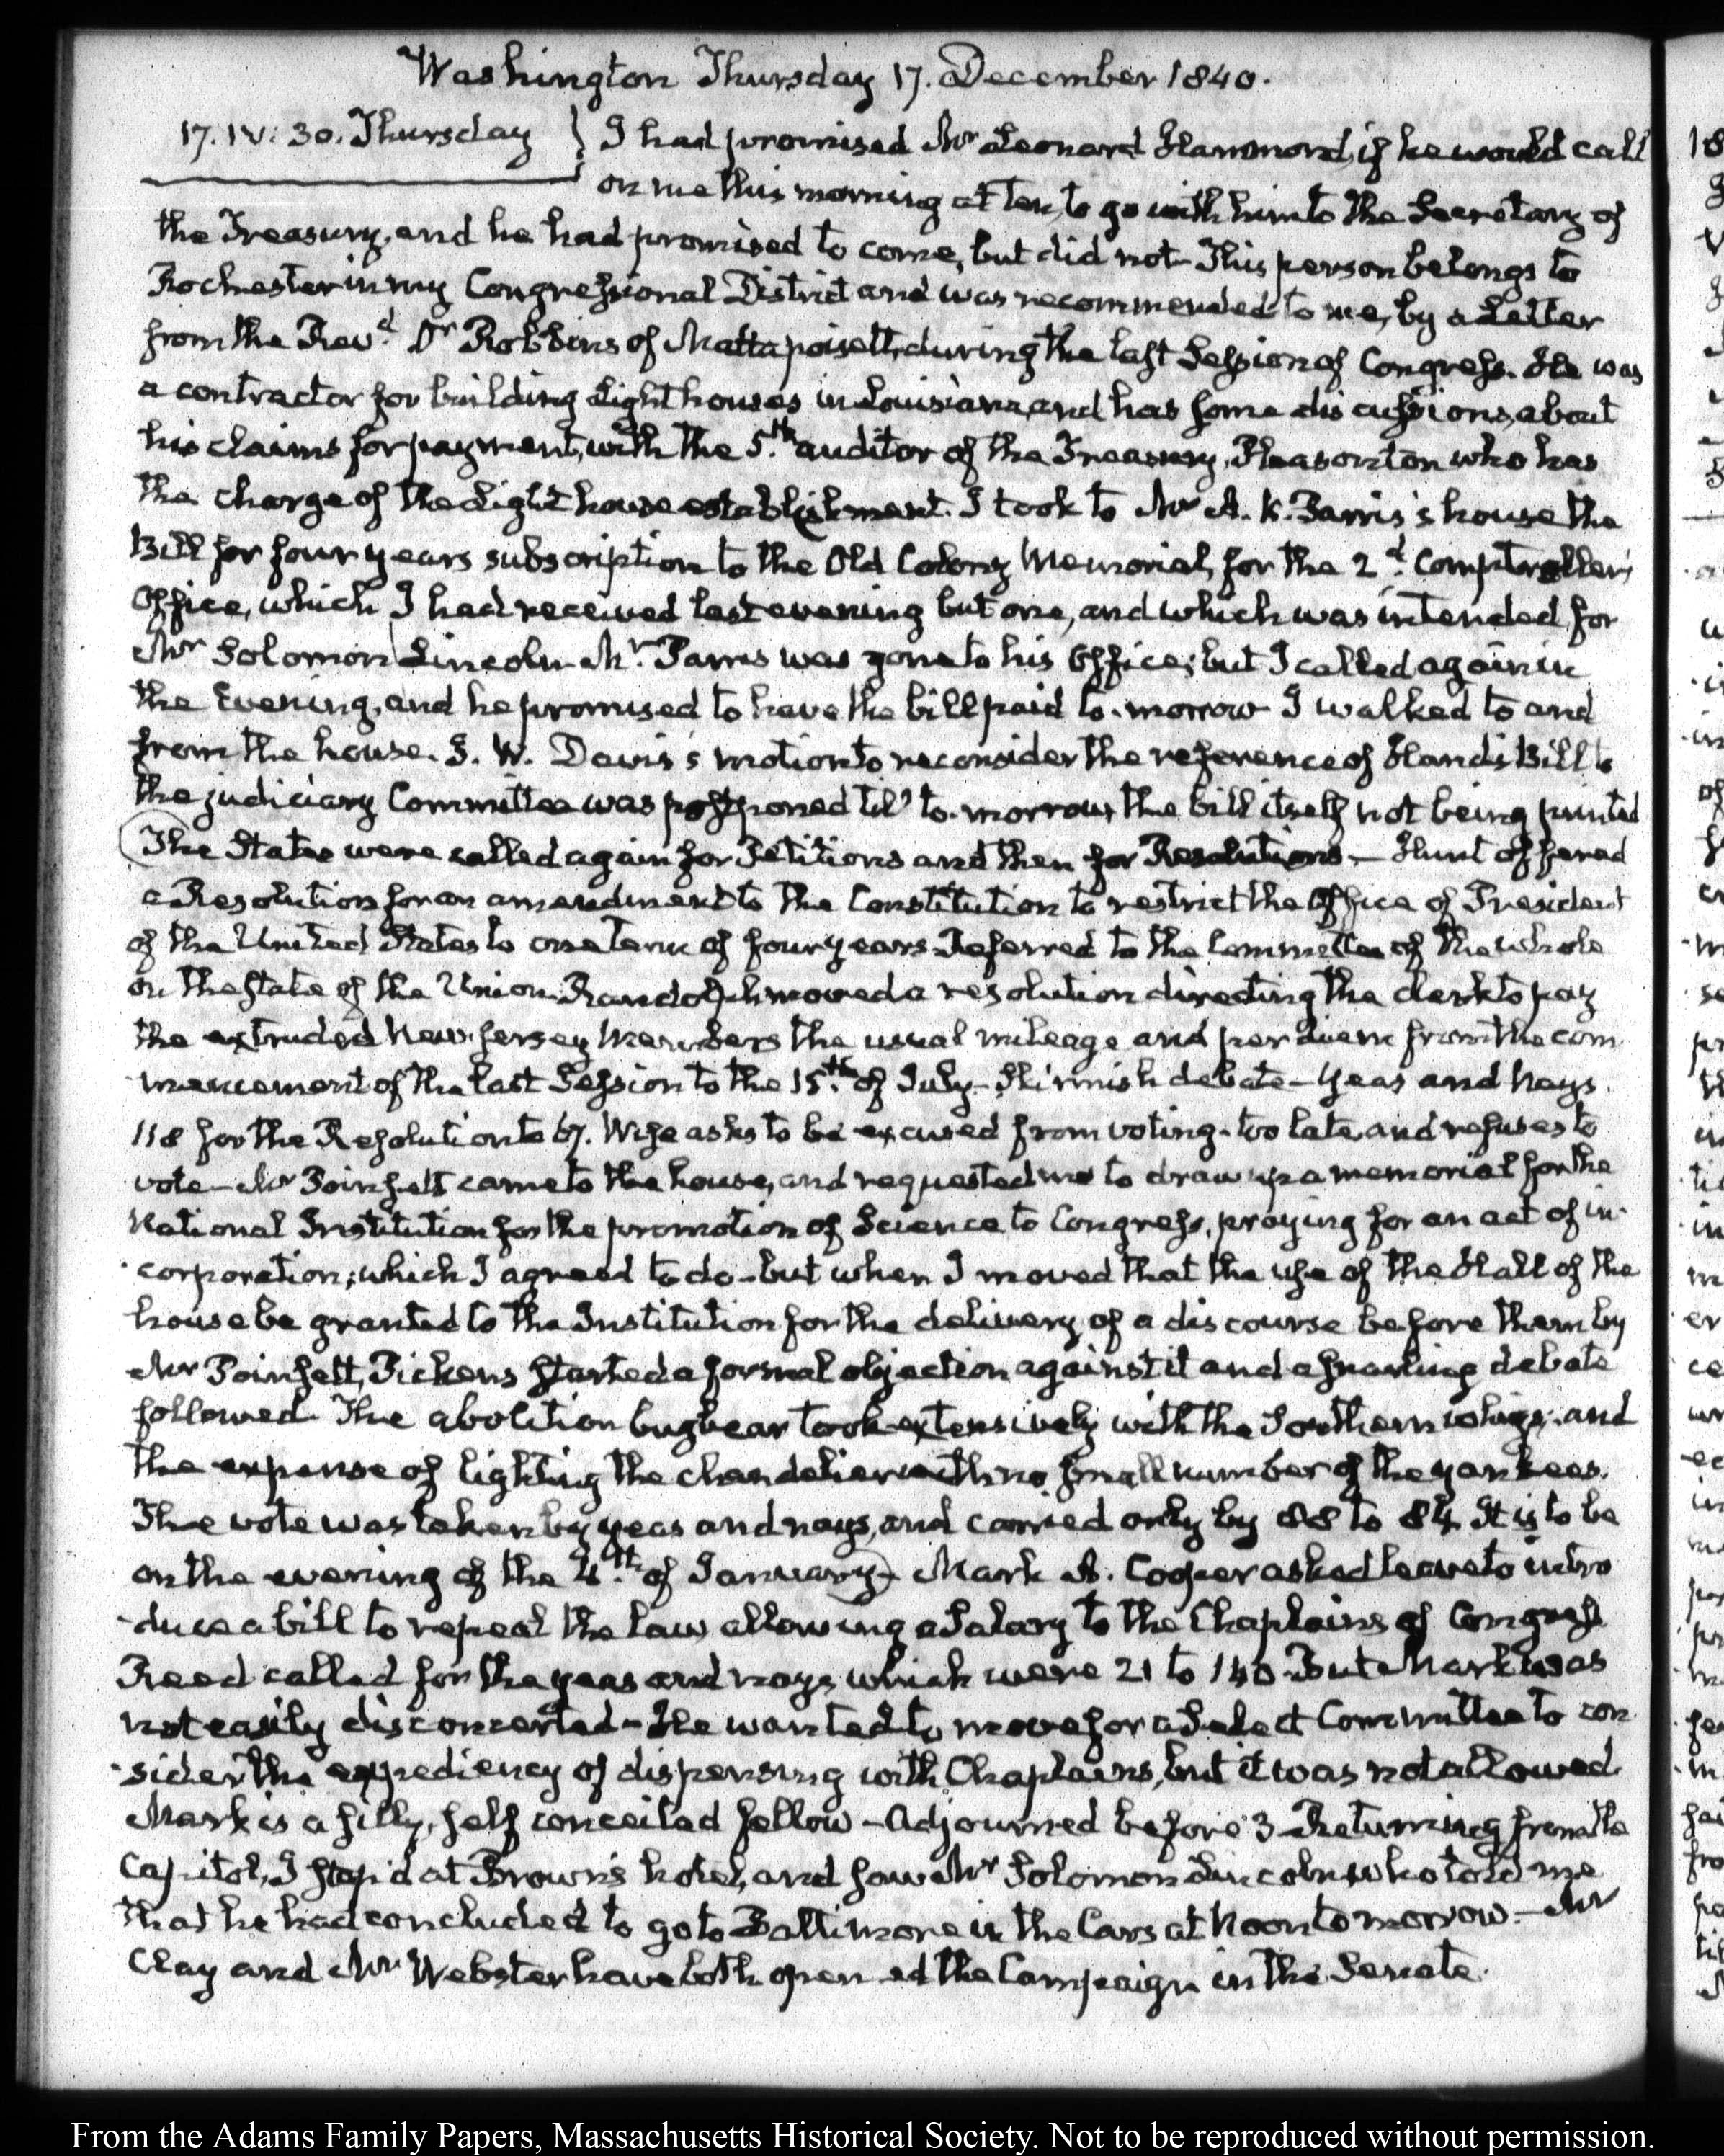 Washington Thursday 17. December 1840.
17. IV: 30. Thursday } I had promised Mr Leonard Hammond, if he would call
on me this morning at ten, to go with him to the Secretary of
the Treasury, and he had promised to come, but did not. This person belongs to
Rochester in my Congressional District and was recommended to me, by a Letter
from the Revd. Dr Robbins of Mattapoisett, during the last Session of Congress. He was
a contractor for building Light houses in Louisiana, and has some discussions, about
his claims for payment, with the 5th. auditor of the Treasury, Pleasonton who has
the charge of the Light house establishment. I took to Mr A. K. Parris's house the
Bill for four years subscription to the Old Colony Memorial, for the 2d. Comptroller's
Office, which I had received last evening but one, and which was intended for
Mr Solomon Lincoln. Mr. Parris was gone to his Office; but I called again in
the Evening, and he promised to have the bill paid to-morrow. I walked to and
from the house. J. W. Davis's motion to reconsider the reference of Hand's Bill to
the judiciary Committee was postponed till to-morrow, the bill itself not being printed
The States were called again for Petitions and then for Resolutions. — Hunt offered
a Resolution for an amendment to the Constitution to restrict the Office of President
of the United States to one term of four years. Referred to the Committee of the whole
on the state of the Union. Randolph moved a resolution directing the clerk to pay
the extruded New-Jersey Members the usual mileage and per diem from the com-
-mencement of the last Session to the 15th. of July — Skirmish debate — Yeas and Nays.
118 for the Resolution to 67. Wise asks to be excused from voting - too late, and refuses to
vote — Mr Poinsett came to the house, and requested me to draw up a memorial for the
National Institution for the promotion of Science to Congress, praying for an act of in-
-corporation; which I agreed to do - but when I moved that the use of the Hall of the
house be granted to the Institution for the delivery of a discourse before them by
Mr Poinsett, Pickens started a formal objection against it and a snarling debate
followed. The abolition bugbear took extensively with the Southern whigs; and
the expense of lighting the chandelier with no small number of the yankees.
The vote was taken by yeas and nays, and carried only by 88 to 84. It is to be
on the evening of the 4th. of January — Mark A. Cooper asked leave to intro
-duce a bill to repeal the law allowing a Salary to the Chaplains of Congress
Reed called for the yeas and nays, which were 21 to 140. But Mark was
not easily disconcerted — He wanted to move for a Select Committee to con-
-sider the expediency of dispensing with Chaplains, but it was not allowed.
Mark is a silly, self conceited fellow — Adjourned before 3. Returning from the
Capitol, I stop'd at Brown's hotel, and saw Mr Solomon Lincoln who told me
that he had concluded to go to Baltimore in the Cars at Noon to morrow. — Mr
Clay and Mr Webster have both opened the Campaign in the Senate.
From the Adams Family Papers, Massachusetts Historical Society. Not to be reproduced without permission.